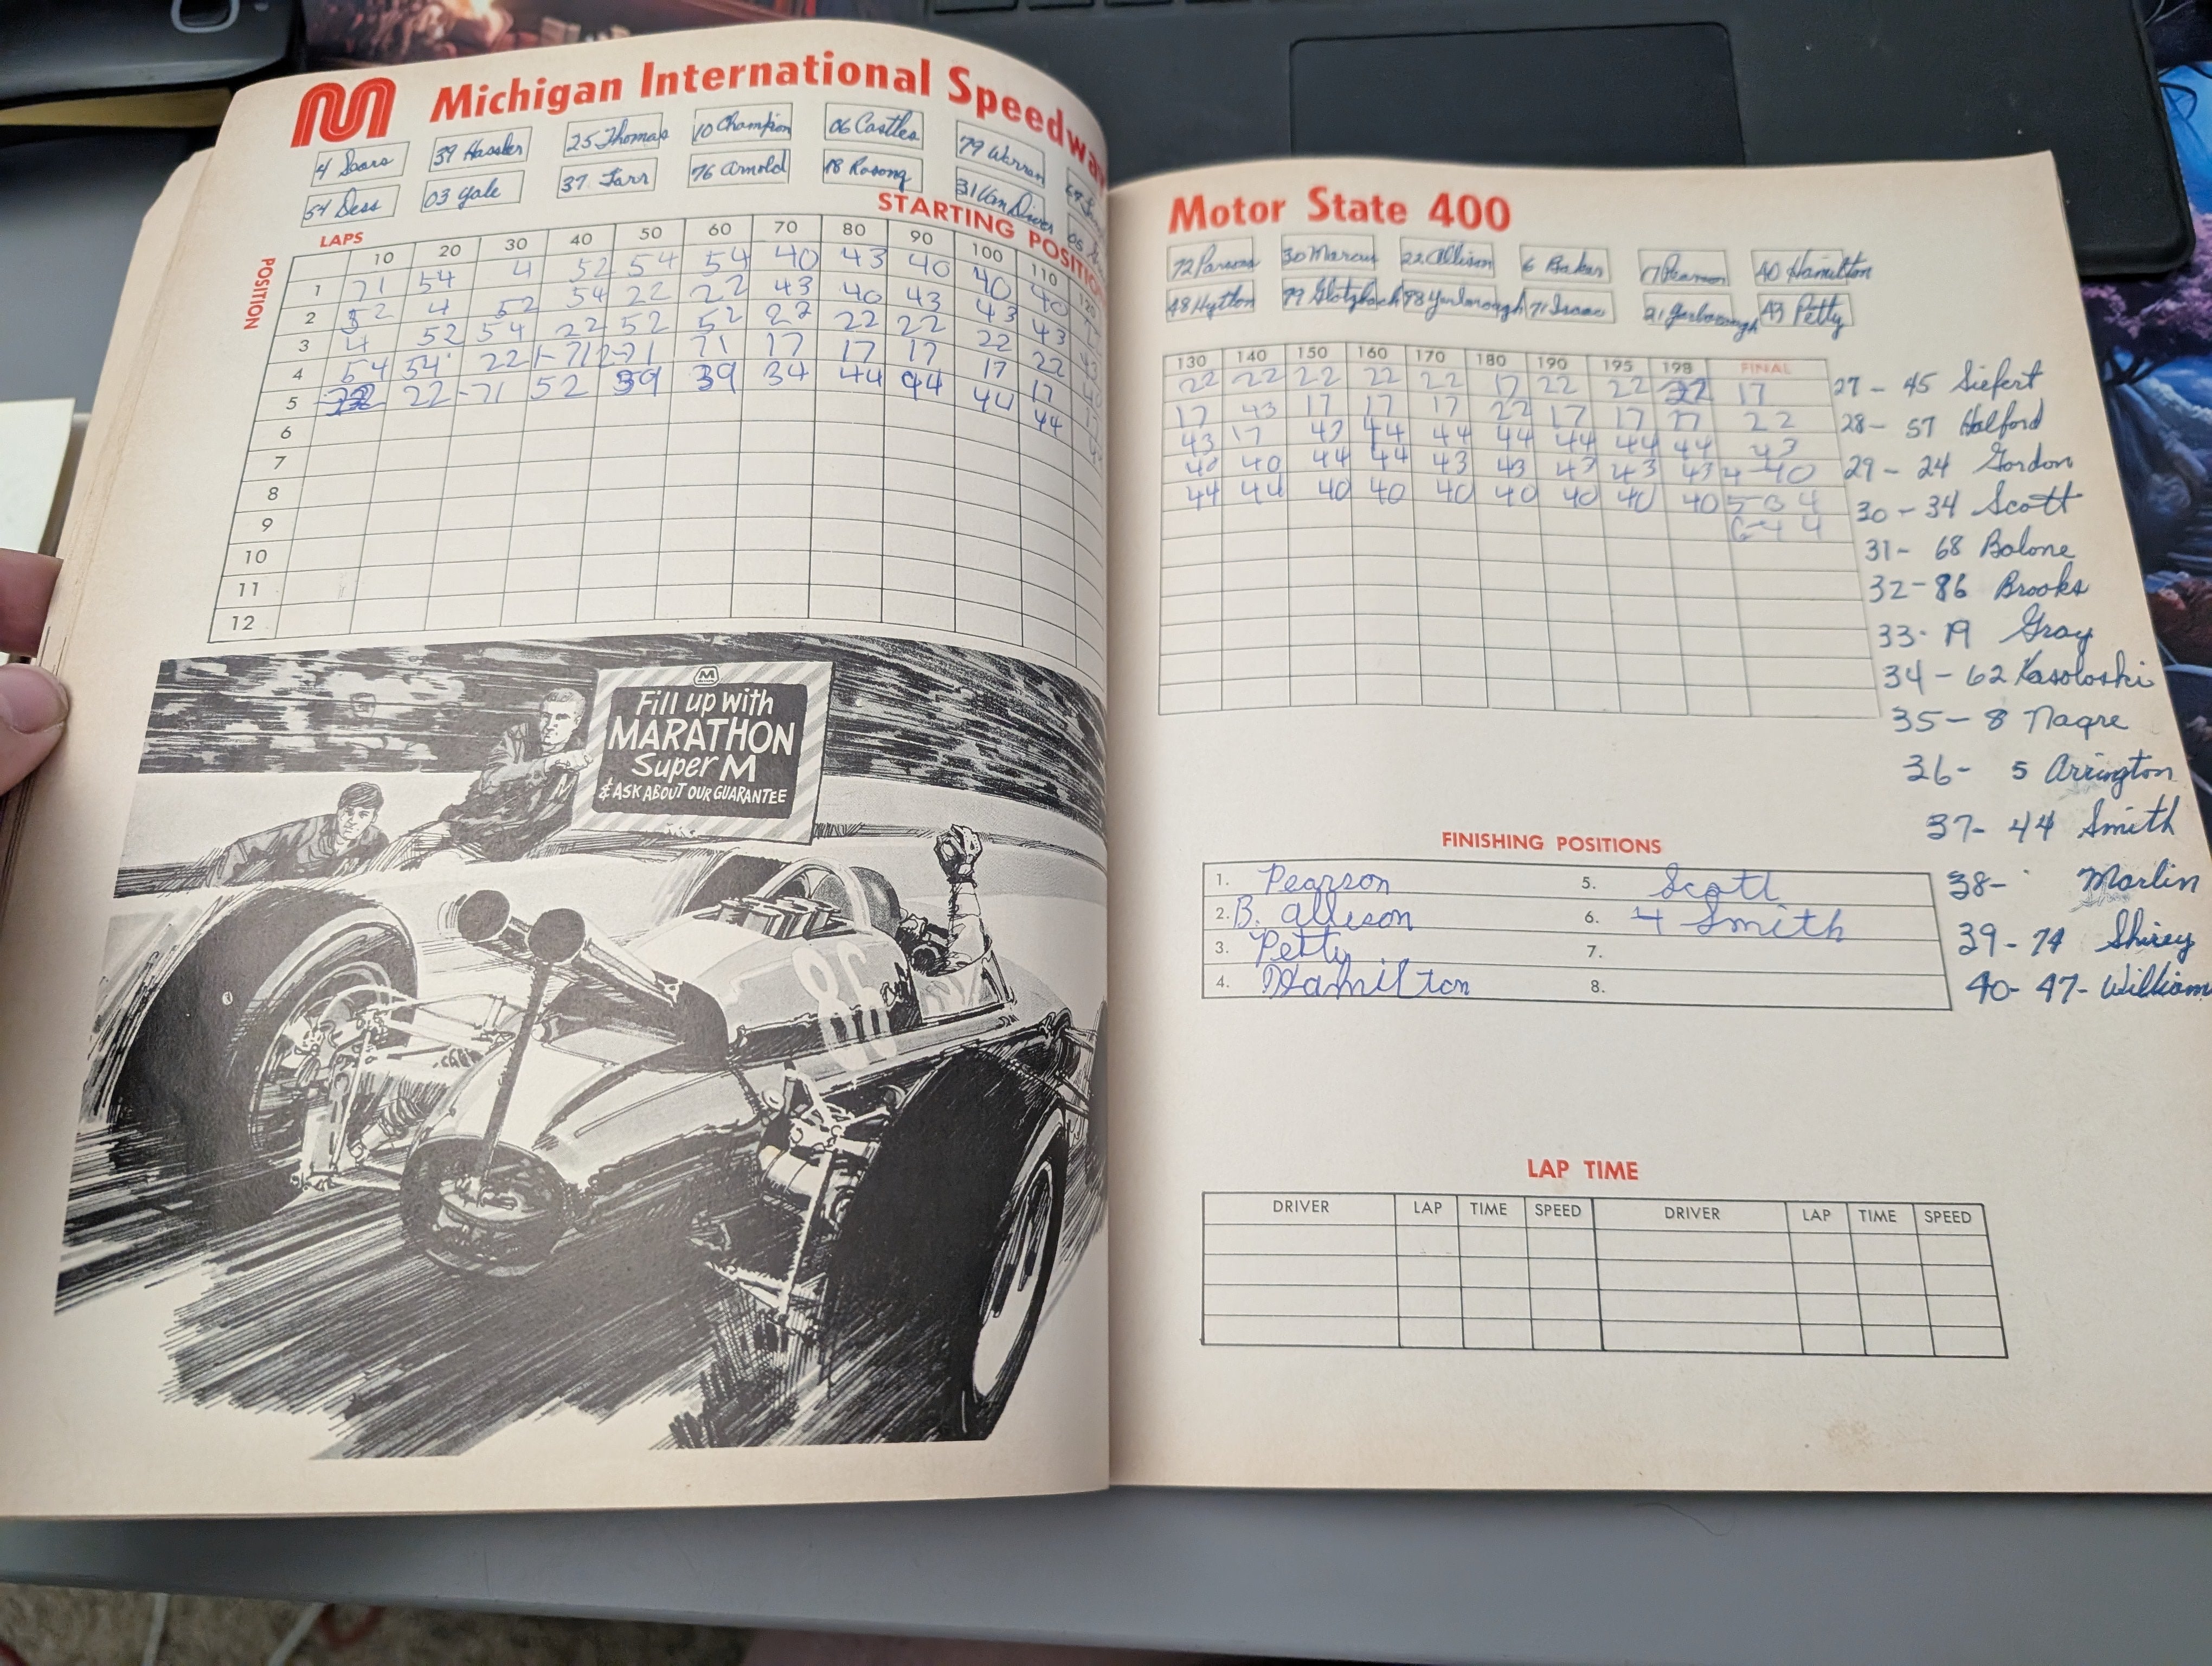 M Michigan International Speedway
4 Soars 39 Hassler 25 Thomas 10 Champion 06 Castles 79 Warren
54 Dess 03 Yale 37 Tarr 76 Arnold 48 Rosong 31 Van Diver
STARTING POSITIO
LAPS
POSITION
10 20 30 40 50 60 70 80 90 100 110 120
1 71 54 4 52 54 54 40 43 40 40 40
2 52 4 52 54 22 22 43 40 43 43 43
3 4 52 54 22 52 52 22 22 22 22 22
4 54 54 22 71 71 71 17 17 17 17 17
5 22 -71 52 39 39 34 44 44 44 44
6
7
8
9
10
11
12
M
Fill up with
MARATHON
Super M
& ASK ABOUT OUR GUARANTEE
86
Motor State 400
72 Parsons 30 Marcus 22 Allison 6 Baker 17 Pearson 40 Hamilton
48 Hylton 99 Glotzbach 98 Yarborough 71 Isaac 21 Yarborough 43 Petty
130 140 150 160 170 180 190 195 198 FINAL
22 22 22 22 22 17 22 22 22 17
17 43 17 17 17 22 17 17 17 22
43 17 43 44 44 44 44 44 44 43
40 40 44 44 43 43 43 43 43 4-40
44 44 40 40 40 40 40 40 40 5-34
6-44
27 - 45 Siefert
28 - 57 Halford
29 - 24 Gordon
30 - 34 Scott
31 - 68 Bolone
32 - 86 Brooks
33 - 19 Gray
34 - 62 Kasoloski
35 - 8 Nagre
36 - 5 Arrington
37 - 44 Smith
38 - Marlin
39 - 74 Shirey
40 - 47 - William
FINISHING POSITIONS
1. Pearson 5. Scott
2. B. Allison 6. 4 Smith
3. Petty 7.
4. Hamilton 8.
LAP TIME
DRIVER LAP TIME SPEED DRIVER LAP TIME SPEED